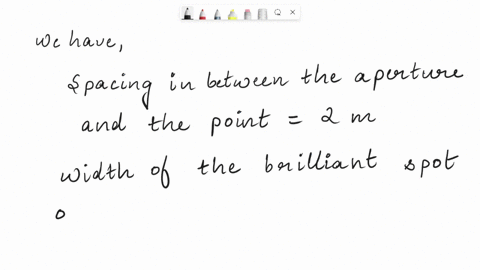 we have,
spacing in between the aperture
and the point = 2 m
width of the brilliant spot
o